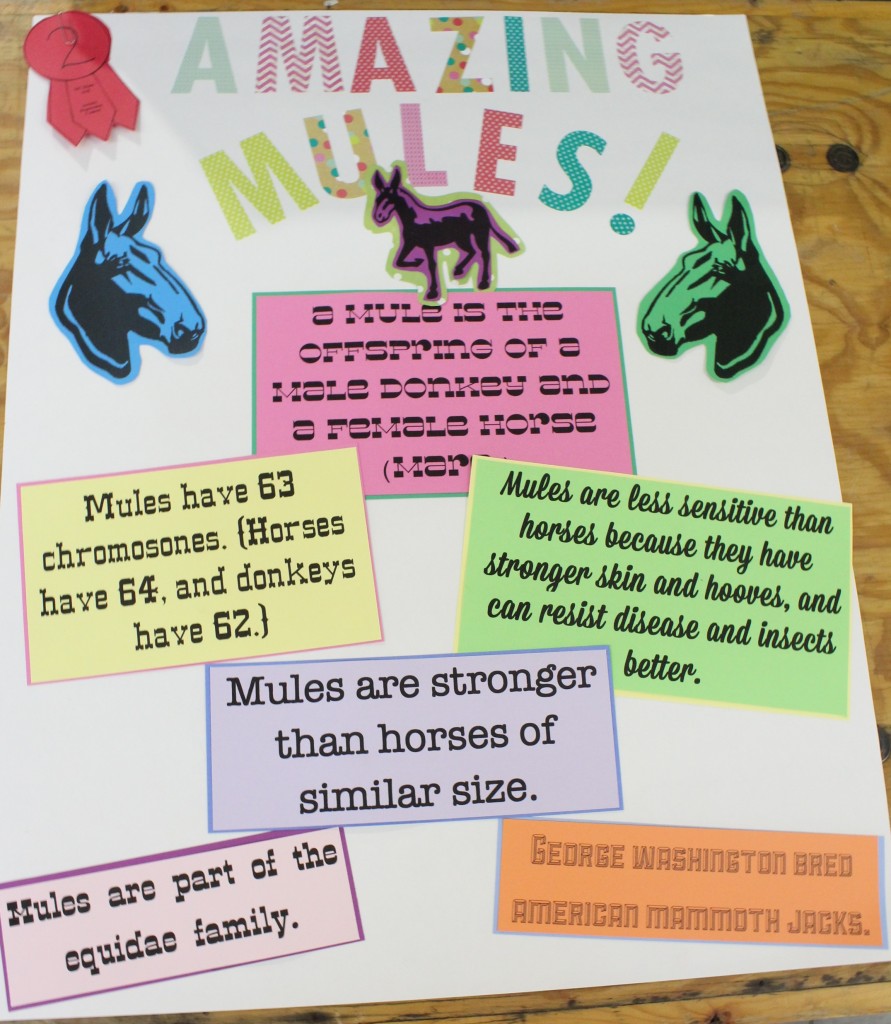 2
AMAZING
MULES!
a MULE IS THE
OFFSPRING OF a
MALE DONKEY AND
a FEMALE HORSE
Mules have 63
chromosones. {Horses
have 64, and donkeys
have 62.}
Mules are less sensitive than
horses because they have
stronger skin and hooves, and
can resist disease and insects
better.
Mules are stronger
than horses of
similar size.
Mules are part of the
equidae family.
GEORGE WASHINGTON BRED
AMERICAN MAMMOTH JACKS.